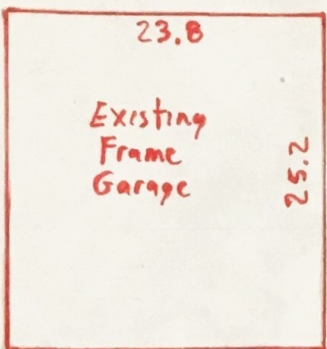 23.8
Existing
Frame
Garage
25.2